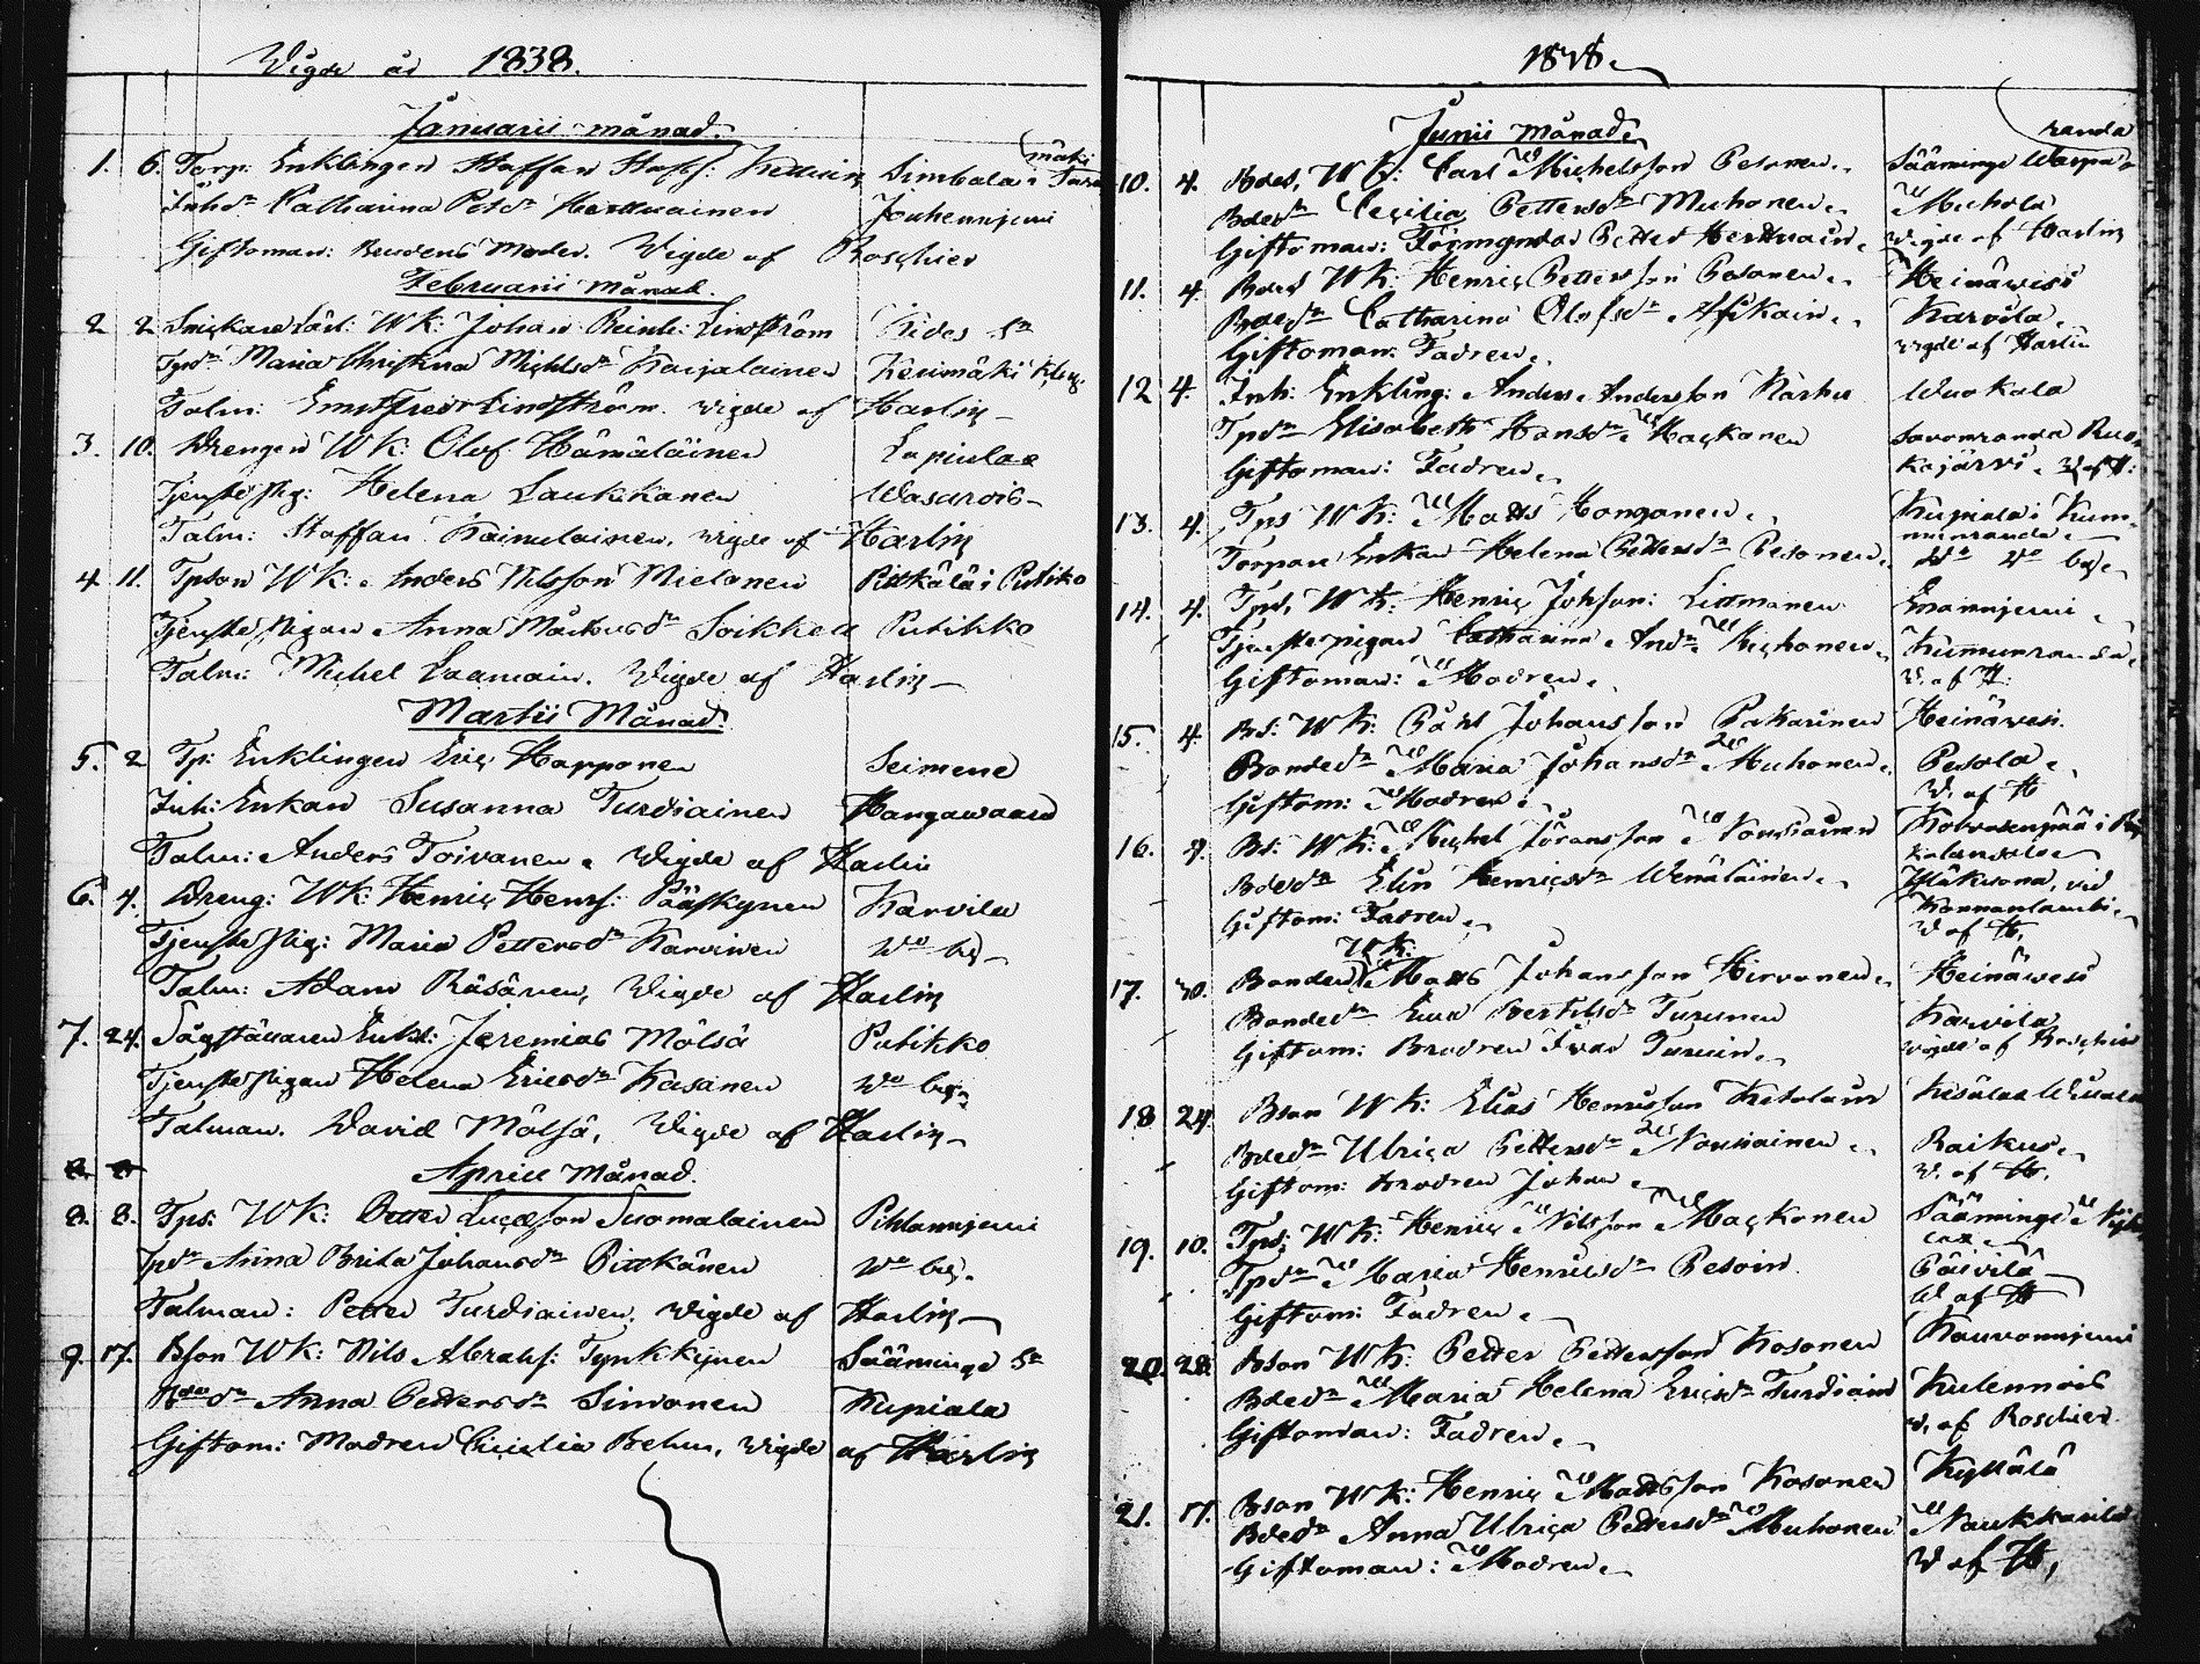 Wigde år 1838.
Januarii månad.
1. 6. Torp: Enklingen Staffan Staffs: Simbala i
mäki
Inhdr Catharina Petdr Herttuainen Jouhenniemi
Giftoman: Brudens Moder. Wigde af Roschier
Februarii månad.
2 2 Snickare lärl: WK: Johan Reinh: Lindström Kides Sn
Tpdr Maria Christina Michlsdr Karjalainen Kerimäki
Talm: Lindström. wigde af Harlin
3. 10. Drengen WK: Olof Hämäläinen
Tjenste pig: Helena Laukkanen
Talm: Staffan Kaimulainen. wigde af Harlin
4 11. Tpson WK: Anders Nilsson Mielonen Pitkälä i Putiko
Tjenste pigan Anna Soikkeli Putikko
Talm: Michel Laamain. Wigde af Harlin
Martii Månad.
5. 2 Tp: Enklingen Eric Happonen
Inh: Enkan Susanna Turdiainen Hangawaara
Talm: Anders Toivanen. Wigde af Harlin
6. 4. Dreng: WK: Henric Henrs: Pääskynen Karvila
Tjenste pig: Maria Pettersdr Karvinen Do by
Talm: Adam Räsänen, Wigde af Harlin
7. 24. Enkl: Jeremias Mölsä Putikko
Tjenste pigan Helena Ericsdr Kasanen Do by
Talman. David Mölsä, Wigde af Harlin
Aprill Månad.
8. 8. Tps: WK: Petter Lucasson Suomalainen Pihlanniemi
Tpdr Anna Brita Johansdr Pitkänen Do by.
Talman: Petter Turdiainen. Wigde af Harlin
9. 17. Bson WK: Nils Abrahs: Tynkkynen Sääminge Sn
Bdedr Anna Pettersdr Simonen Kupiala
Giftom: Modren Cicilia Behm, wigde af Harlin
1838.
Junii Månad.
10. 4. Bdes, WK: Carl Michelsson Pesonen. Sääminge
randa
Bdesdr Cecilia Pettersdr Muhonen. Muhola
Giftoman: Förmyndar Petter Herttuain. Wigde af Harlin
11. 4. Bdes WK: Henric Pettersson Pesonen. Heinäwesi
Bdesdr Catharina Olofsdr Asikain. Karvila.
Giftoman: Fadren. wigde af Harlin
12 4. Inh: Enkling: Anders Andersson Karhu Wuokala
Tpdr Elisabeth Hansdr Mackonen Savonranda
Giftoman: Fadren.
13. 4. Tps WK: Matts Honganen. Kupiala i Kum-
munranda.
Torpare Enkan Helena Pettersdr Pesonen. Do Do by
14. 4. Tps, WK: Henric Johsson: Littmanen Enanniemi
Tjenste pigan Catharina Anddr Muhonen. Kummunranda.
Giftoman: Modren. W. af H:
15. 4. Bs: WK: Påhl Johansson Pakarinen Heinäwesi.
Bondedr Maria Johansdr Muhonen. Pesola.
Giftom: Modren. W. af H
16. 4. Bs: WK: Michel Göransson Nousiainen
Bdesdr Elin Henricsdr Wenäläinen.
Giftom: Fadren. W af H.
17. 30. Bonden WK: Matts Johansson Hirvonen. Heinäwesi
Bondedr Ewa Bertilsdr Turunen Karvila
Giftom: Brodren Iwar Turuin. wigde af Roschier
18 24. Bson WK: Elias Henricsson Ketolain
Bdedr Ulrica Pettersdr Nousiainen. Raikus.
Giftom: brodren Johan W. af H.
19. 10. Tps: WK: Henric Nilsson Mackonen Sääminge
Tpdr Maria Henricsdr Pesoin. Päivilä
Giftom: Fadren. W af H
20. 28. Bson WK: Petter Pettersson Kosonen Kauvonniemi
Bdedr Maria Helena Ericsdr Turdiain Kulennois
Giftoman: Fadren. W. af Roschier.
21. 17. Bson WK: Henric Mattsson Kosonen
Bdedr Anna Ulrica Pettersdr Muhonen
Giftoman: Modren. W af H,